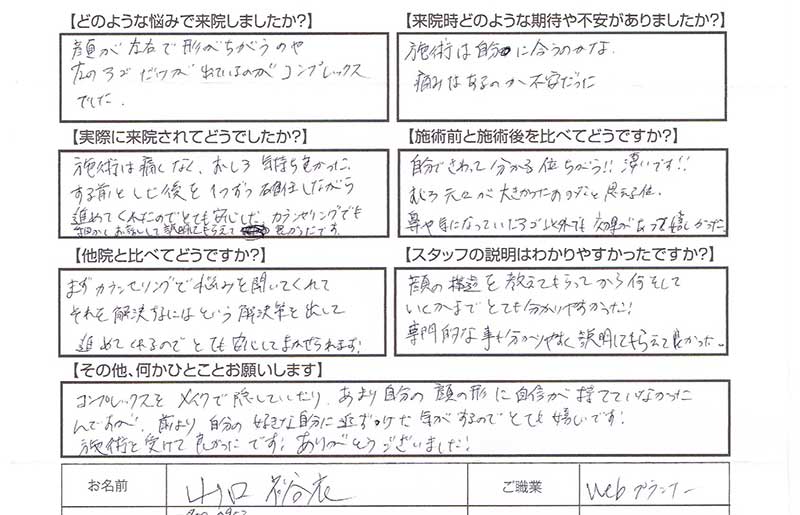 【どのような悩みで来院しましたか?】
顔が左右で形がちがうのや
左のエラだけが出ているのがコンプレックス
でした.
【来院時どのような期待や不安がありましたか?】
施術は自分に合うのかな
痛みはあるのか不安だった
【実際に来院されてどうでしたか?】
施術は痛くなく、むしろ気持ち良かった.
する前とした後を1つずつ確認しながら
進めてくれたのでとても安心した. カウンセリングでも
細かくお話しして説明してもらえて 良かったです.
【施術前と施術後を比べてどうですか?】
自分でさわって分かる位ちがう!! 凄いです!!
むしろ元々が大きかったのかなと思える位.
鼻や気になっていたエラ以外でも効果があって嬉しかった.
【他院と比べてどうですか?】
まずカウンセリングで悩みを聞いてくれて
それを解決するにはという解決策を出して
進めてくれるのでとても安心してまかせられます!
【スタッフの説明はわかりやすかったですか?】
顔の構造を教えてもらってから何をして
いくかまでとても分かりやすかった!
専門的な事も分かりやすく説明してもらえて良かった.
【その他、何かひとことお願いします】
コンプレックスをメイクで隠していたり、あまり自分の顔の形に自信が持てていなかった
んですが、前より自分の好きな自分に近ずけた気がするのでとても嬉しいです!
施術を受けて良かったです! ありがとうございました!
お名前 山口 裕衣 ご職業 Webプランナー